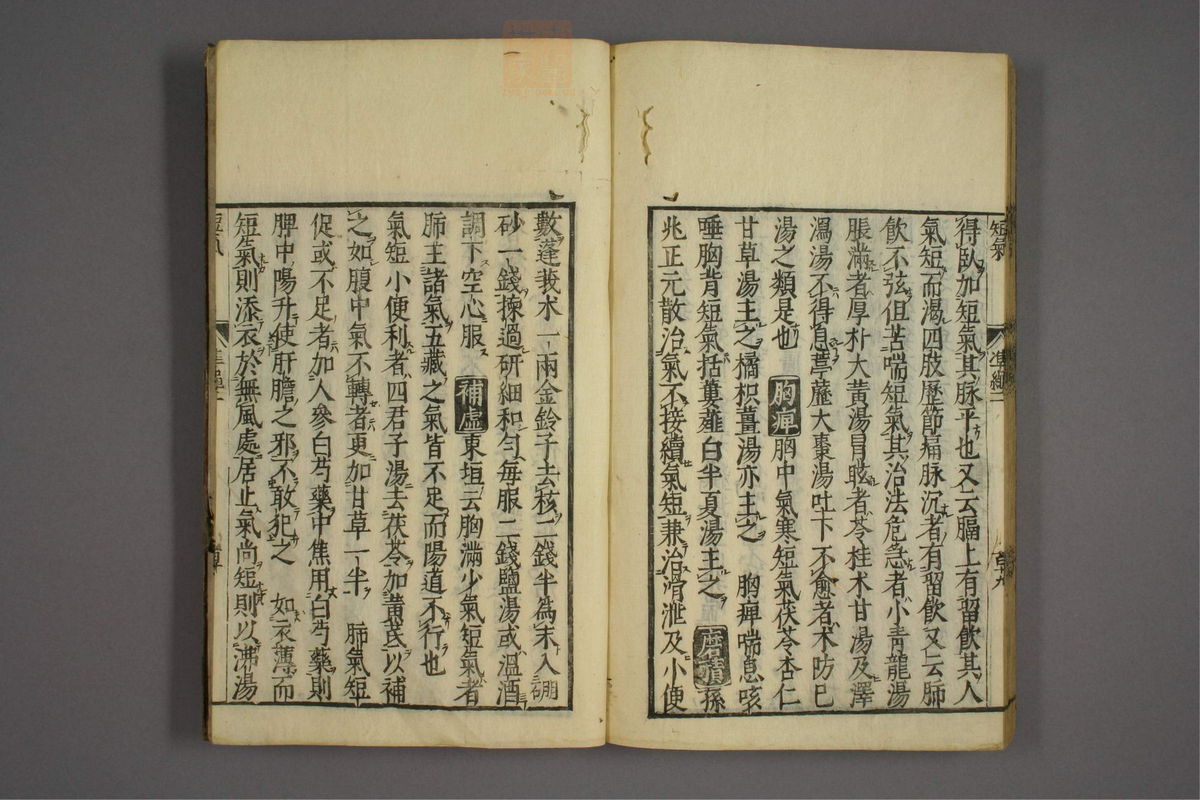 短氣
得臥加短氣其脉平也又云膈上有留飲其人
氣短而渴四肢歷節痛脉沉者有留飲又云肺
飲不弦但苦喘短氣其治法危急者小青龍湯
脹滿者厚朴大黃湯冒眩者苓桂朮甘湯及澤
瀉湯不得息葶藶大棗湯吐下不愈者木防已
湯之類是也 胸痺胸中氣寒短氣茯苓杏仁
甘草湯主之橘枳薑湯亦主之 胸痺喘息咳
唾胸背短氣括蔞薤白半夏湯主之 磨積孫
兆正元散治氣不接續氣短兼治滑泄及小便
數蓬莪朮一兩金鈴子去核二錢半為末入硼
砂一錢揀過研細和勻每服二錢鹽湯或溫酒
調下空心服 補虛東垣云胸滿少氣短氣者
肺主諸氣五藏之氣皆不足而陽道不行也
氣短小便利者四君子湯去茯苓加黃芪以補
之如腹中氣不轉者更加甘草一半 肺氣短
促或不足者加人參白芍藥中焦用白芍藥則
脾中陽升使肝膽之邪不敢犯之 如衣薄而
短氣則添衣於無風處居止氣尚短則以沸湯